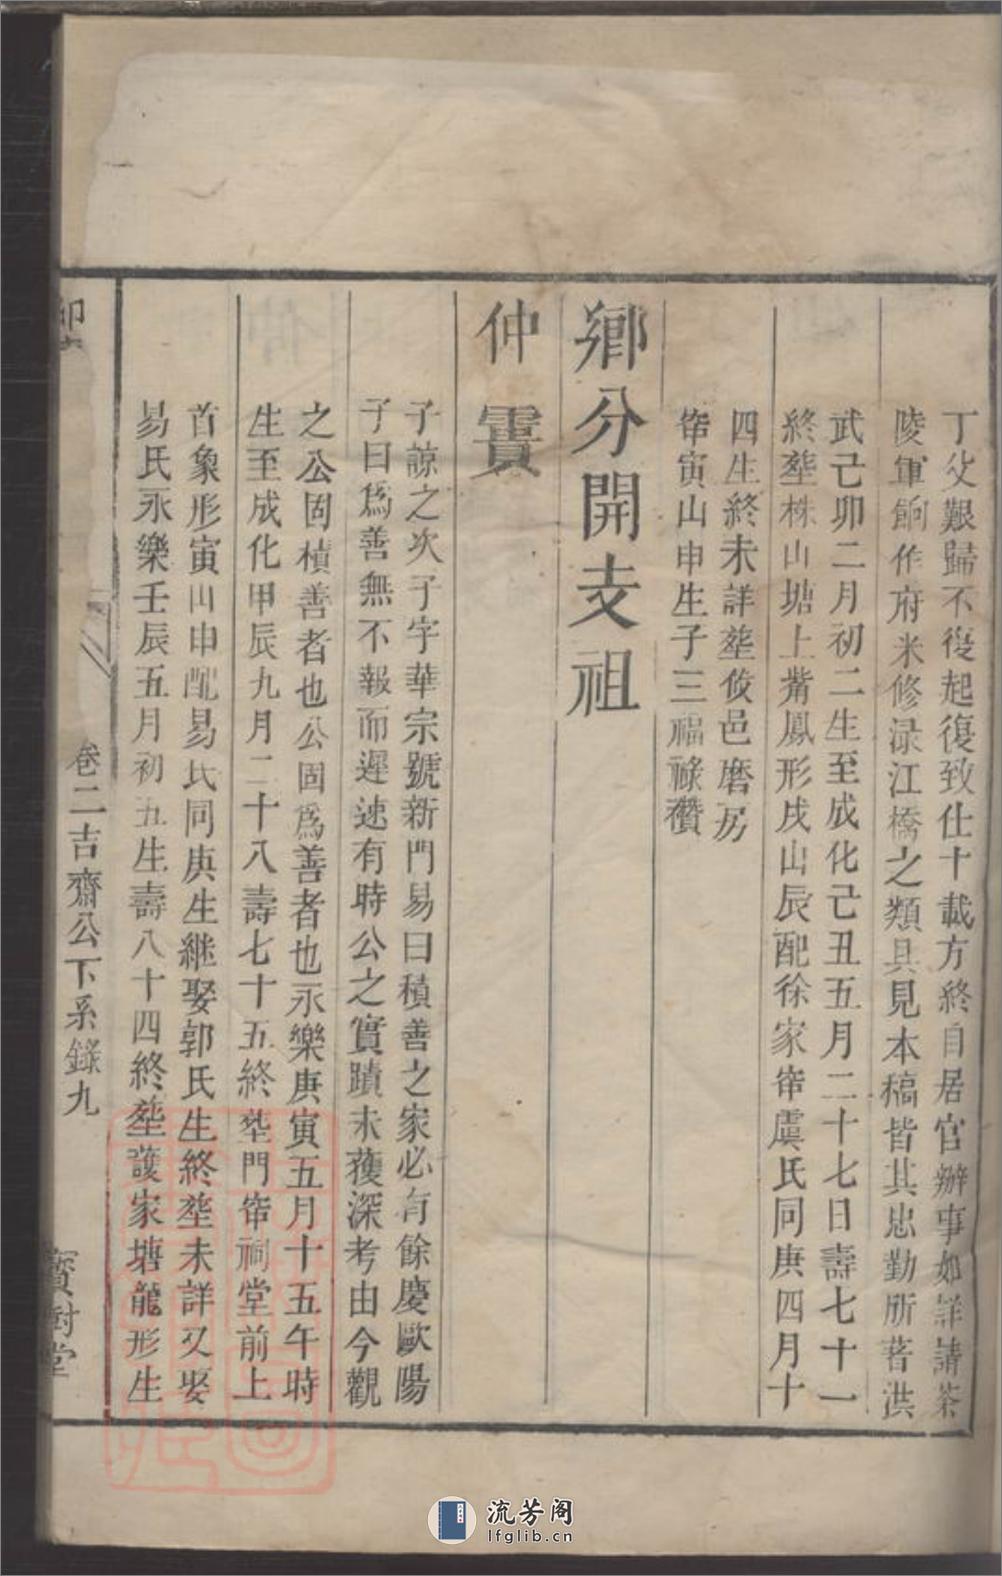 丁父艱歸不復起復致仕十載方終自居官辦事如詳請茶
陵軍餉作府米修渌江橋之類具見本稿皆其忠勤所著洪
武己卯二月初二生至成化己丑五月二十七日壽七十一
終塟株山塘上嘴鳳形戌山辰配徐家帘虞氏同庚四月十
四生終未詳塟攸邑磨房
帘寅山申生子三福祿禶
鄉分開支祖
仲霣
子諒之次子字華宗號新門易曰積善之家必有餘慶歐陽
子曰為善無不報而遲速有時公之實蹟未獲深考由今觀
之公固積善者也公固為善者也永樂庚寅五月十五午時
生至成化甲辰九月二十八壽七十五終塟門帘祠堂前上
首象形寅山申配易氏同庚生継娶郭氏生終塟未詳又娶
易氏永樂壬辰五月初五生壽八十四終塟護家塘龍形生
卷二吉齋公下系錄九
寶樹堂
流芳阁
lfglib.cn